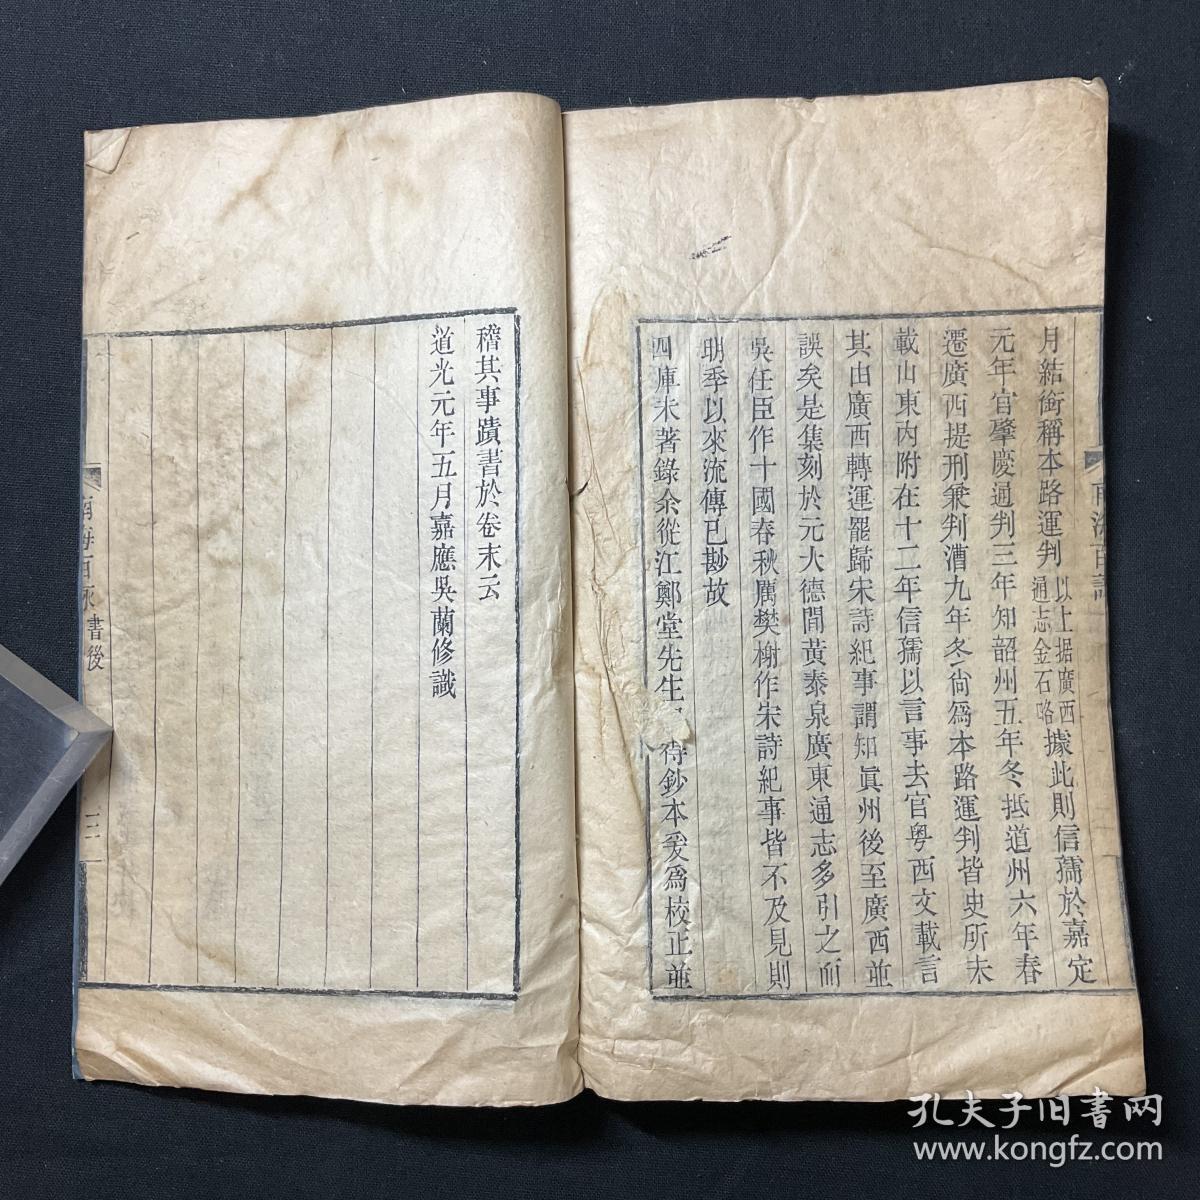 月結銜稱本路運判以上據廣西通志金石略據此則信孺於嘉定
元年官肇慶通判三年知韶州五年冬抵道州六年春
遷廣西提刑兼判漕九年冬尙爲本路運判皆史所未
載山東內附在十二年信孺以言事去官粤西文載言
其由廣西轉運罷歸宋詩紀事謂知眞州後至廣西並
誤矣是集刻於元大德閒黃泰泉廣東通志多引之而
吳任臣作十國春秋厲樊榭作宋詩紀事皆不及見則
明季以來流傳已尠故
四庫未著錄余從江鄭堂先生得鈔本爰爲校正並
稽其事蹟書於卷末云
道光元年五月嘉應吳蘭修識
南海百詠 書後
三
孔夫子旧书网
www.kongfz.com